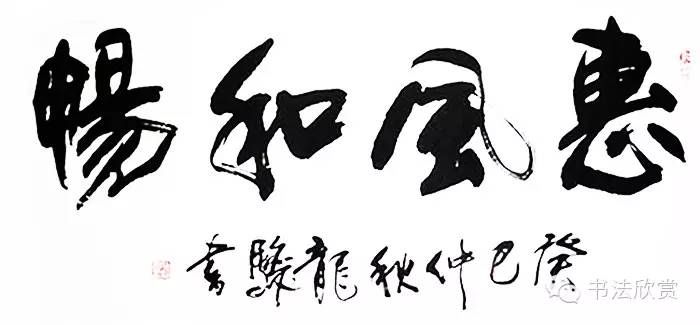 惠風和暢
癸巳仲秋龍書
书法欣赏